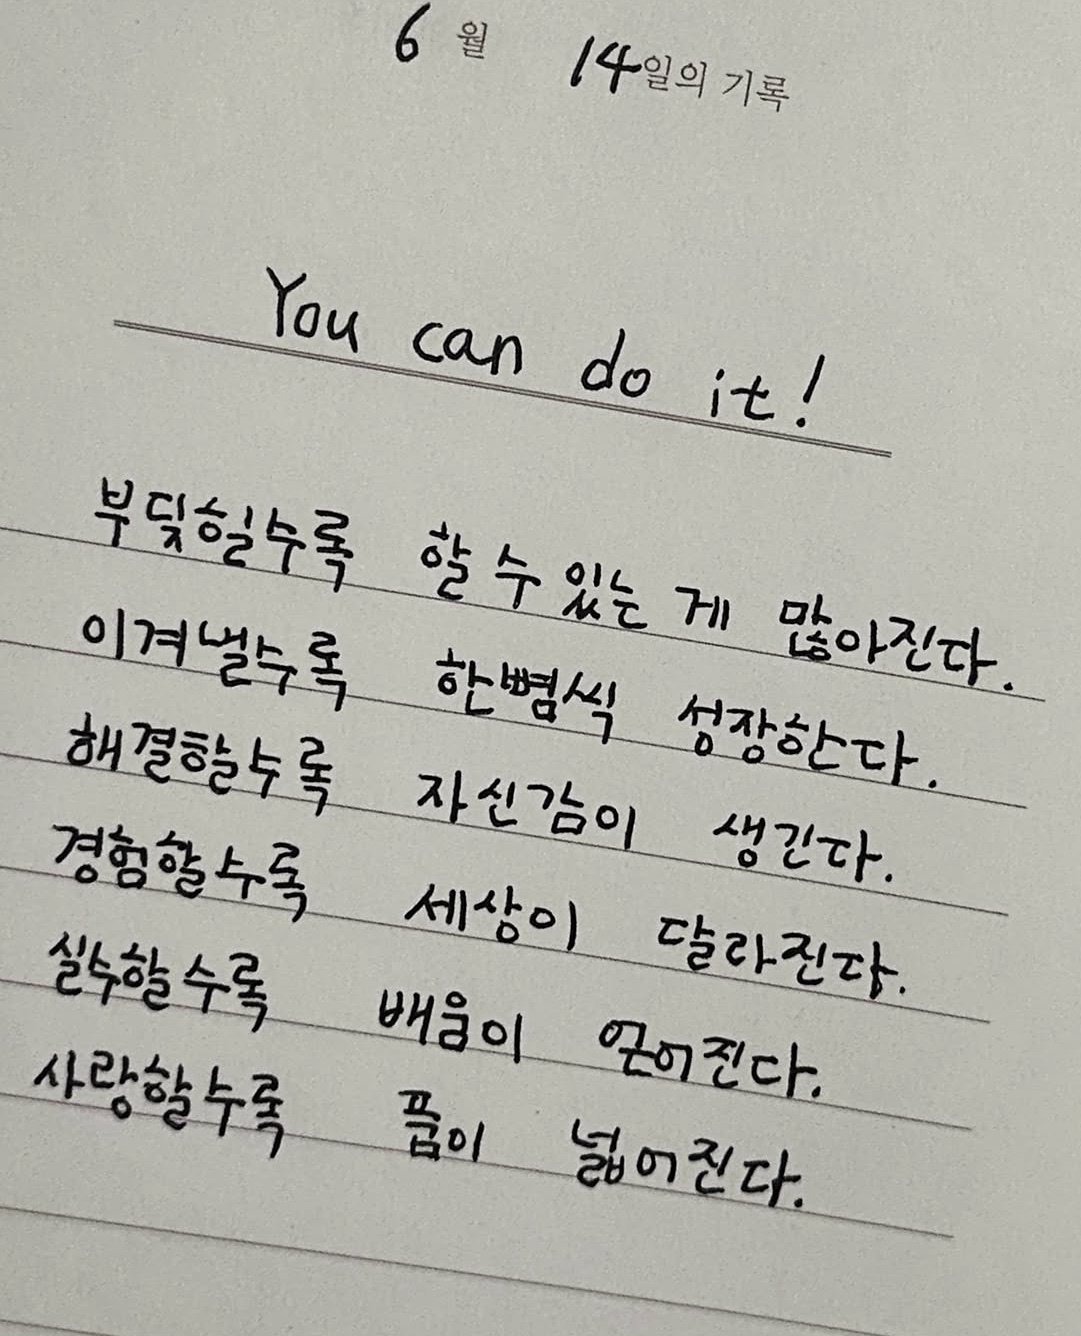 6월 14일의 기록
You can do it!
부딪힐수록 할 수 있는 게 많아진다.
이겨낼수록 한뼘씩 성장한다.
해결할수록 자신감이 생긴다.
경험할수록 세상이 달라진다.
실수할수록 배움이 얻어진다.
사랑할수록 품이 넓어진다.